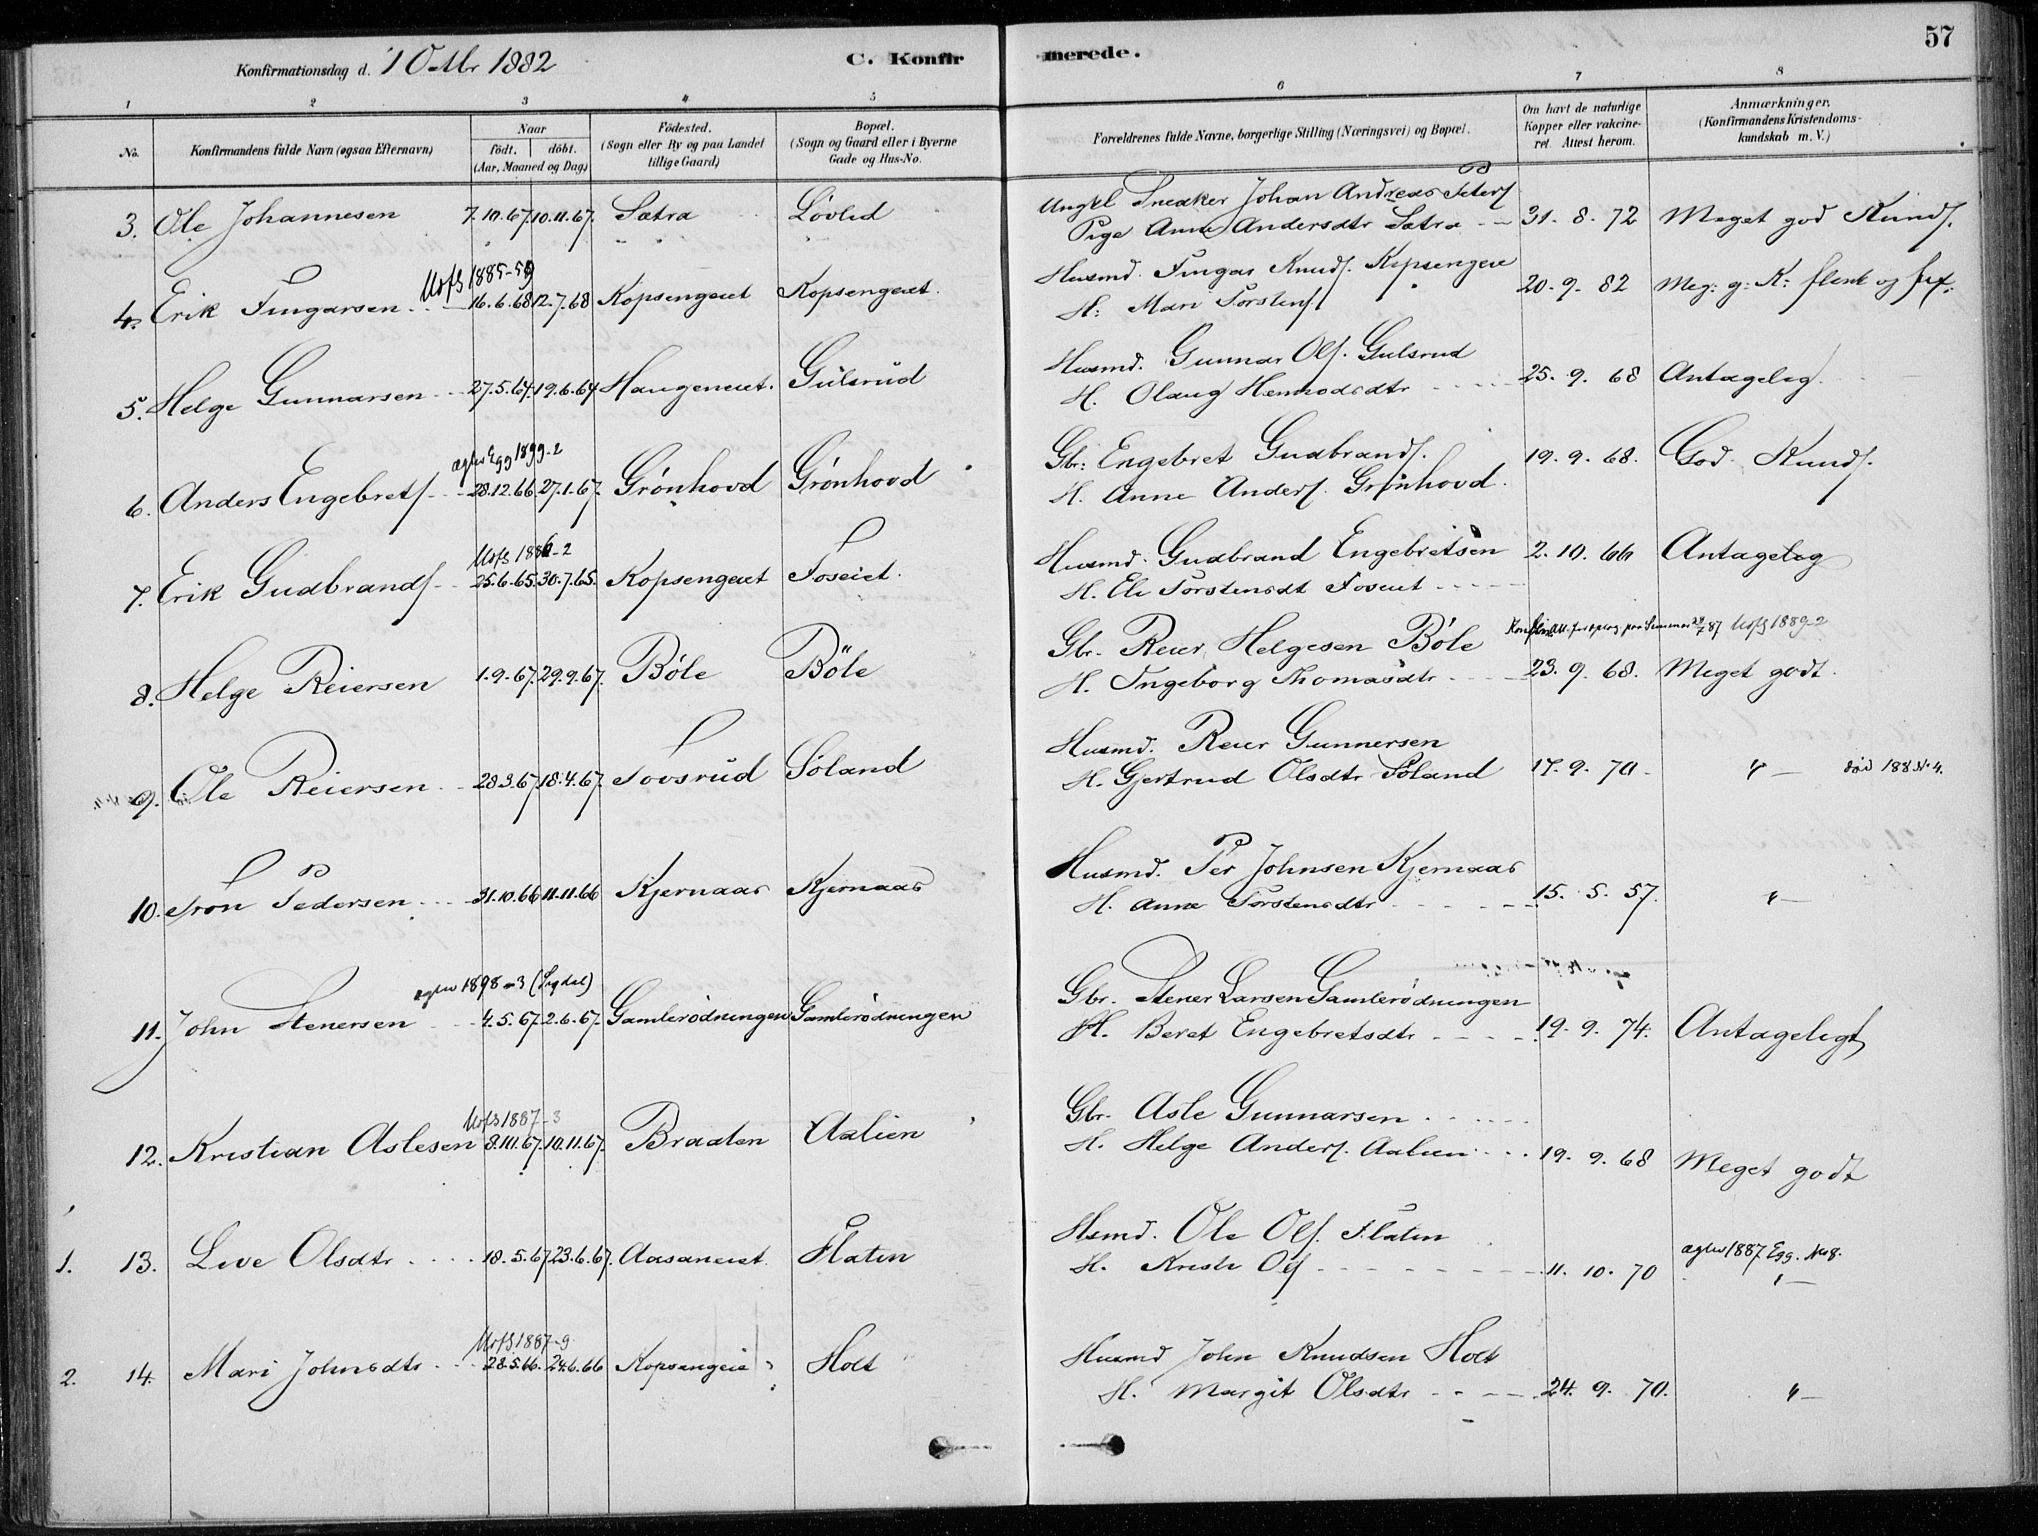 57
Konfirmationsdag d. 1882 C. Konfir merede.
1 2 3 4 5 6 7 8
No. Konfirmandens fulde Navn (ogsaa Efternavn) Naar født. døbt. (Aar, Maaned og Dag) Fødested. (Sogn eller By og paa Landet tillige Gaard) Bopæl. (Sogn og Gaard eller i Byerne Gade og Hus-No. Forældrenes fulde Navne, borgerlige Stilling (Næringsvei) og Bopæl. Om havt de naturlige Kopper eller vakcineret. Attest herom. Anmærkninger. (Konfirmandens Kristendomskundskab m. V.)
3. Ole Johannesen 7.10.67. 10.11.67. Sætra Løvlid Ungkl Snedker Johan Andreas Peters
Pige Anne Andersdtr Sætra 31. 8. 72 Meget god Kunds.
Utfl 1885-59
4. Erik Fingarsen 16.6.68 12.7.68 Kopsengeiet Kopsengeiet. Husmd. Fingar Knuds. Kopsengeie
H: Mari Torstens 20. 9. 82 Meg: g: K: flink og
5. Helge Gunnarsen 27.5.67. 19.6.67 Haugeneiet. Gulsrud Husmd. Gunnar Ols. Gulsrud
H. Olaug Hermodsdtr 25. 9. 68 Antageleg.
ægtev Egg 1899-2
6. Anders Engebrets 28.12.66. 27.1.67. Grønhovd Grønhovd Gbr: Engebret Gudbrands.
H. Anne Anders. Grønhovd. 19. 9. 68. God Kunds.
Utfl 1886-2
7. Erik Gudbrands 25.6.65. 30.7.65. Kopsengeiet Foseiet. Husmd. Gudbrand Engebretsen
H. Eli Torstensdt Foseiet 2. 10. 66 Antageleg
Utfl 1889-2
8. Helge Reiersen 1.9.67. 29.9.67. Bøle Bøle Gbr. Reier Helgesen Bøle
H. Ingeborg Thomasdtr 23. 9. 68. Meget godt.
9. Ole Reiersen 28.3.67. 18.4.67. Tovsrud Søland Husmd. Reier Gunnersen
H. Gjertrud Olsdtr Søland 17. 9. 70. " død 188 N. 4.
10. Tron Pedersen 31.10.66 11.11.66 Kjernaas Kjernaas Husmd. Per Johnsen Kjernaas
H. Anne Torstensdtr 15. 5. 57. "
ægtev 1898-3 (Sigdal)
11. John Stenersen 4.5.67. 2.6.67. Gamlerødningen Gamlerødningen Gbr. Stener Larsen Gamlerødningen
H. Beret Engebretsdtr 19. 9. 74. Antageligt
Utfl 1887-3
12. Kristian Aslesen 8.10.67. 10.11.67. Braaten Aalien Gbr. Asle Gunnarsen
H. Helge Anders. Aalien 19. 9. 68 Meget godt
1. 13. Live Olsdtr 18.5.67. 23.6.67. Aasaneiet Flaten Hsmd. Ole Ols. Flaten
H. Kristi Ols 11. 10. 70 ægtev 1887 Egg. No 8. "
Utfl 1887-9
2. 14. Mari Johnsdtr 28.5.66. 24.6.66 Kopsengeie Holt Husmd John Knudsen Holt
H. Margit Olsdtr 24. 9. 70. "